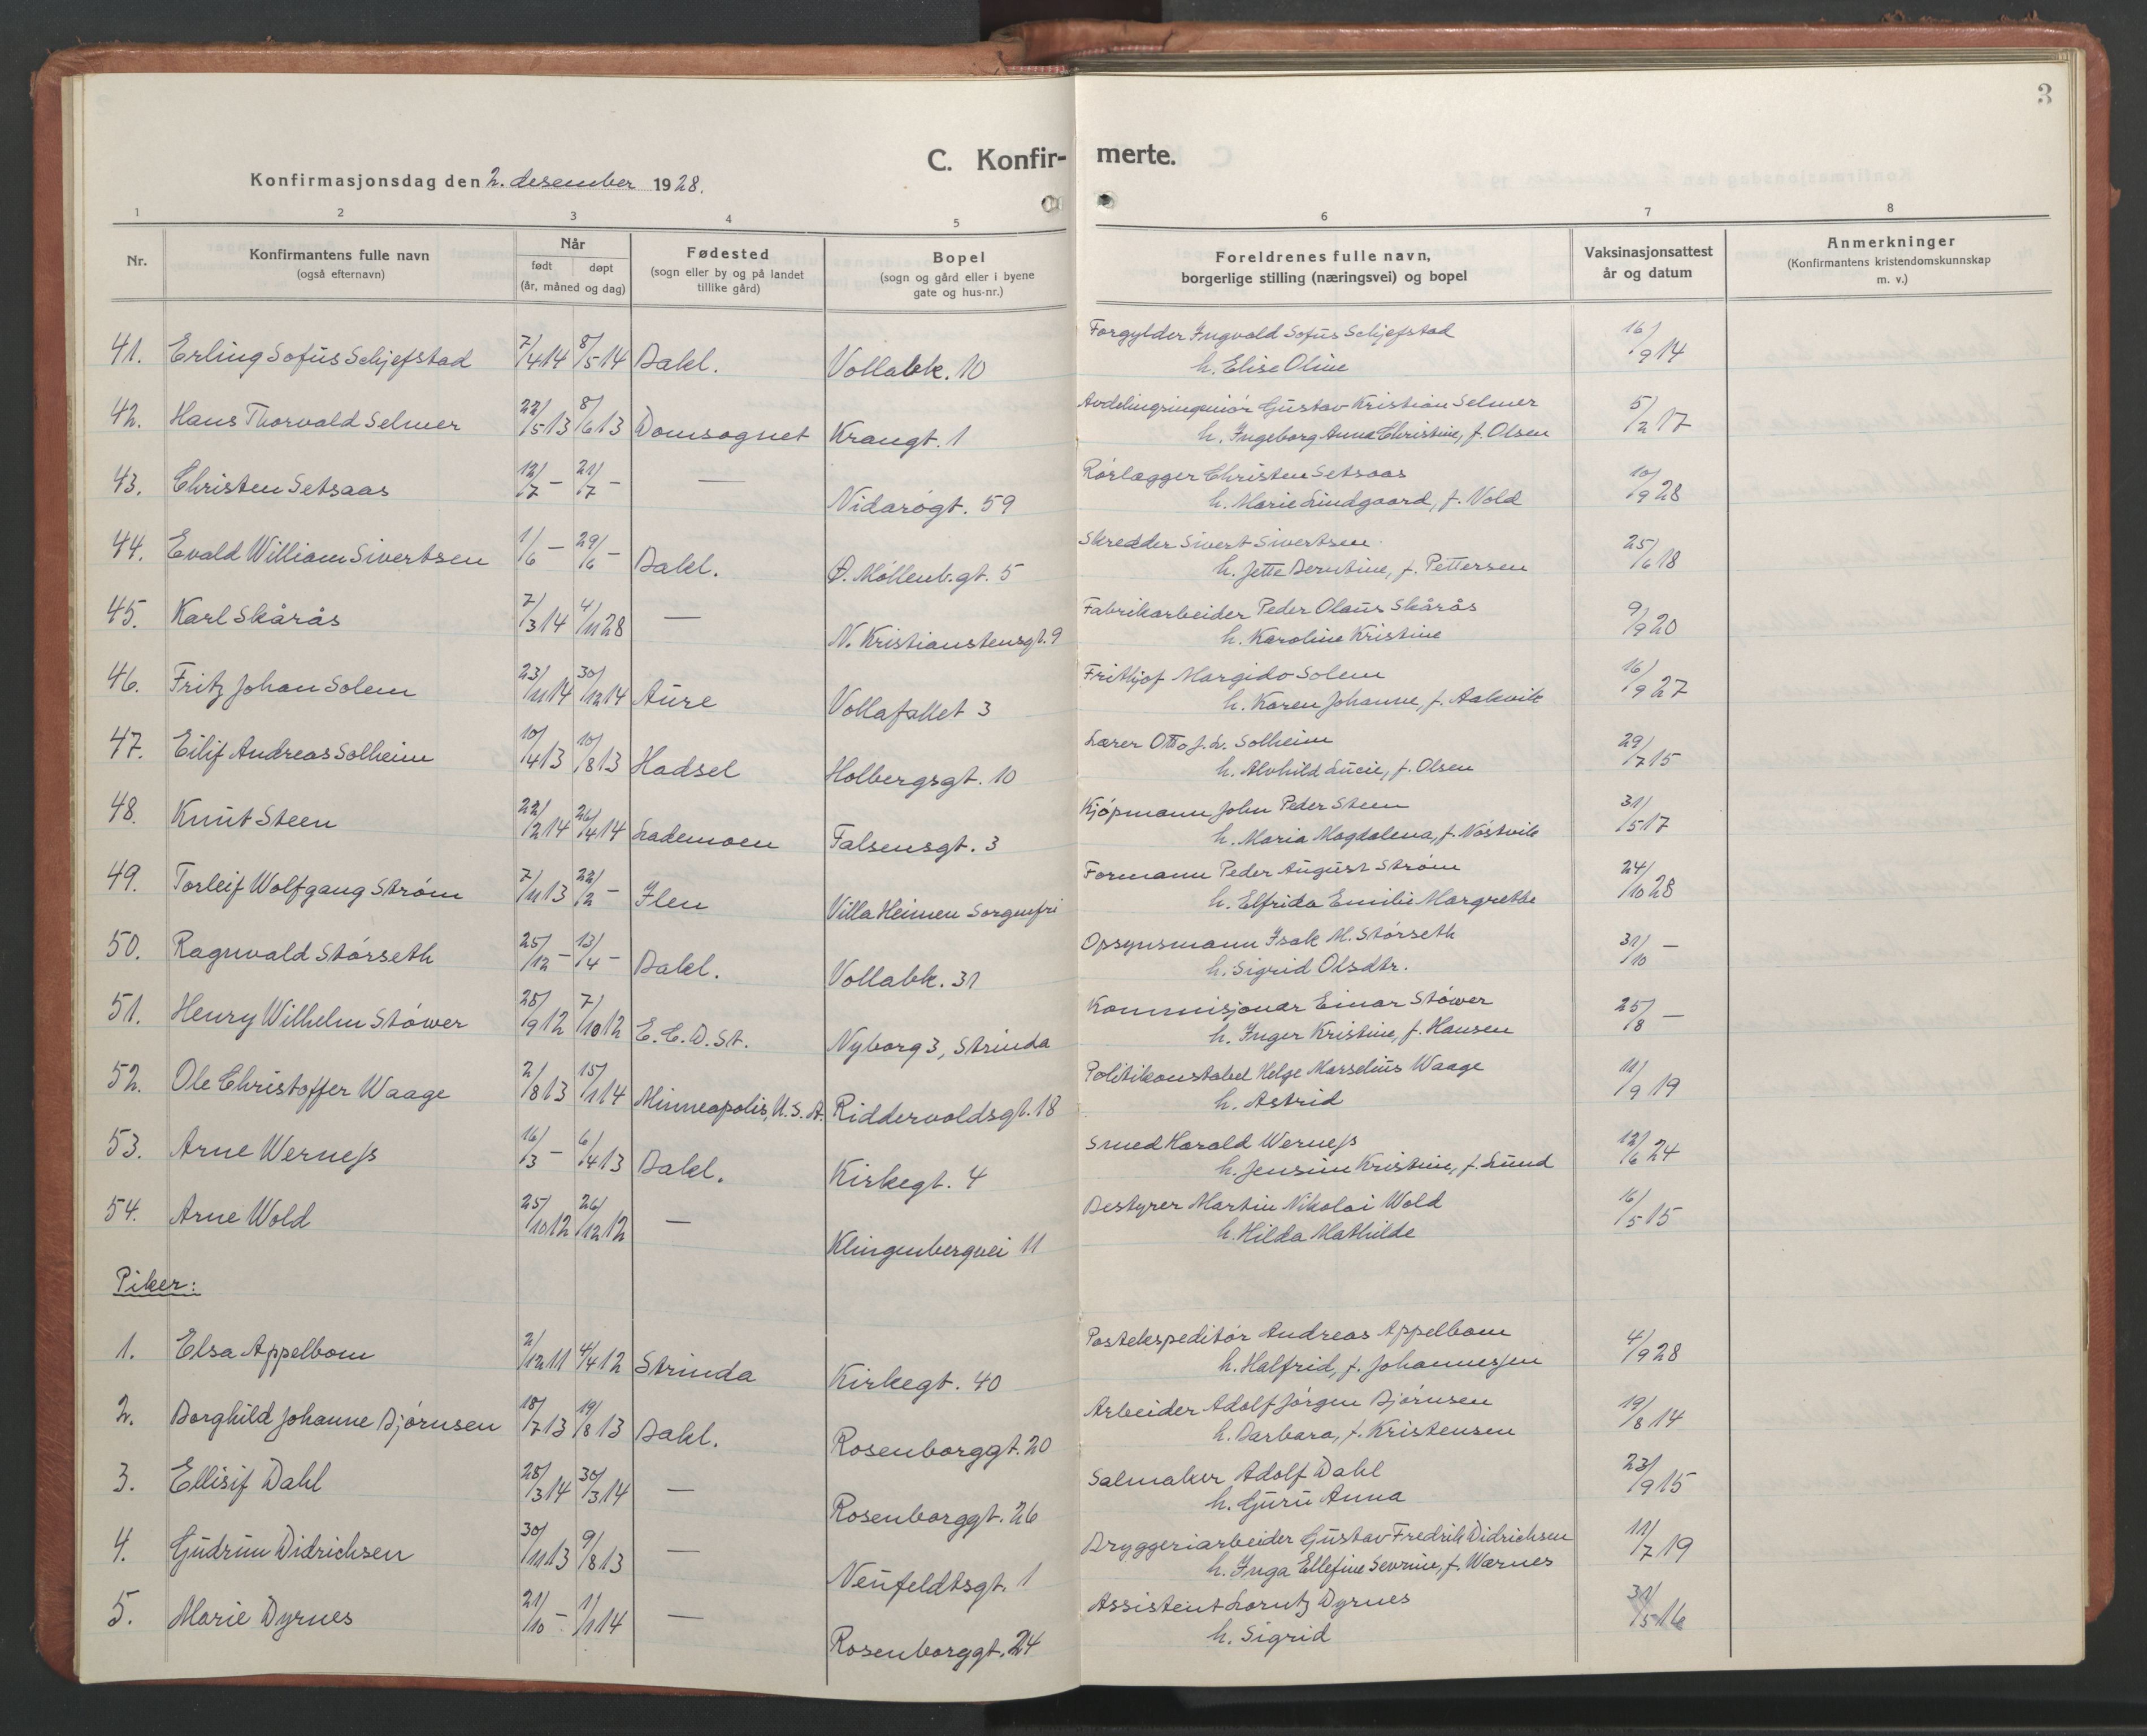 3
C. Konfir- merte.
Konfirmasjonsdag den 2. desember 1928.
1 2 3 4 5 6 7 8
Nr. Konfirmantens fulle navn (også efternavn) Når født døpt (år, måned og dag) Fødested (sogn eller by og på landet tillike gård) Bopel (sogn og gård eller i byene gate og hus-nr.) Foreldrenes fulle navn, borgerlige stilling (næringsvei) og bopel Vaksinasjonsattest år og datum Anmerkninger (Konfirmantens kristendomskunnskap m. v.)
41. Erling Sofus Schjefstad 7/4 14 8/5 14 Bakl. Vollabk. 10 Forgylder Ingvald Sofus Schjefstad 16/9 14
h. Elise Oline
42. Hans Thorvald Selmer 22/5 13 8/6 13 Domsognet Krangt. 1 Avdelingsingeniør Gustav Kristian Selmer 5/2 17
h. Ingeborg Anna Christine, f. Olsen
43. Christen Setsaas 12/7 – 21/7 – — Nidarøgt. 59 Rørlægger Christen Setsaas 10/9 28
h. Marie Lindgaard, f. Vold
44. Evald William Sivertsen 1/6 – 29/6 – Bakl. Ø. Møllenb.gt. 5 Skredder Sivert Sivertsen 25/6 18
h. Jette Berntine, f. Pettersen
45. Karl Skårås 7/3 14 4/11 28 — N. Kristianstensgt. 9 Fabrikarbeider Peder Olaus Skårås 9/9 20
h. Karoline Kristine
46. Fritz Johan Solem 23/11 14 30/12 14 Aure Vollafallet 3 Frithjof Margido Solem 16/9 27
h. Karen Johanne, f. Aakvik
47. Eilif Andreas Solheim 10/4 13 10/8 13 Hadsel Holbergsgt. 10 Lærer Otto J. L. Solheim 29/7 15
h. Alvhild Lucie, f. Olsen
48. Knut Steen 22/2 14 26/4 14 Lademoen Falsensgt. 3 Kjøpmann John Peder Steen 31/5 17
h. Maria Magdalena, f. Nøstvik
49. Torleif Wolfgang Strøm 7/11 13 22/2 – Ilen Villa Heimen Sorgenfri Formann Peder August Strøm 24/10 28
h. Elfrida Emilie Margrethe
50. Ragnvald Størseth 25/12 – 13/4 – Bakl. Vollabk. 31 Opsynsmann Isak M. Størseth 31/10 –
h. Sigrid Olsdtr.
51. Henry Wilhelm Støwer 28/9 12 7/10 12 E.C.D.St. Nyborg 3, Strinda Kommisjonær Einar Støwer 25/8 –
h. Inger Kristine, f. Hansen
52. Ole Christoffer Waage 2/8 13 15/1 14 Minneapolis, U.S.A. Riddervoldsgt. 18 Politikonstabel Helge Marselius Waage 11/9 19
h. Astrid
53. Arne Werness 16/3 – 6/4 13 Bakl. Kirkegt. 4 Smed Harald Werness 12/6 24
h. Jensine Kristine, f. Lund
54. Arne Wold 25/10 12 26/12 12 — Klingenbergvei 11 Bestyrer Martin Nikolai Wold 16/5 15
h. Hilda Mathilde
Piker:
1. Elsa Appelbom 2/12 11 4/4 12 Strinda Kirkegt. 40 Postekspeditør Andreas Appelbom 4/9 28
h. Halfrid, f. Johannessen
2. Borghild Johanne Bjørnsen 18/7 13 19/8 13 Bakl. Rosenborggt. 20 Arbeider Adolf Jørgen Bjørnsen 19/8 14
h. Barbara, f. Kristensen
3. Ellisif Dahl 28/3 14 30/3 14 — Rosenborggt. 26 Salmaker Adolf Dahl 23/9 15
h. Guru Anna
4. Gudrun Didrichsen 30/11 13 9/8 13 — Neufeldtsgt. 1 Bryggeriarbeider Gustav Fredrik Didrichsen 11/7 19
h. Inga Ellefine Sevrine, f. Warnes
5. Marie Dyrnes 21/10 – 1/1 14 — Rosenborggt. 24 Assistent Lorntz Dyrnes 31/5 16
h. Sigrid